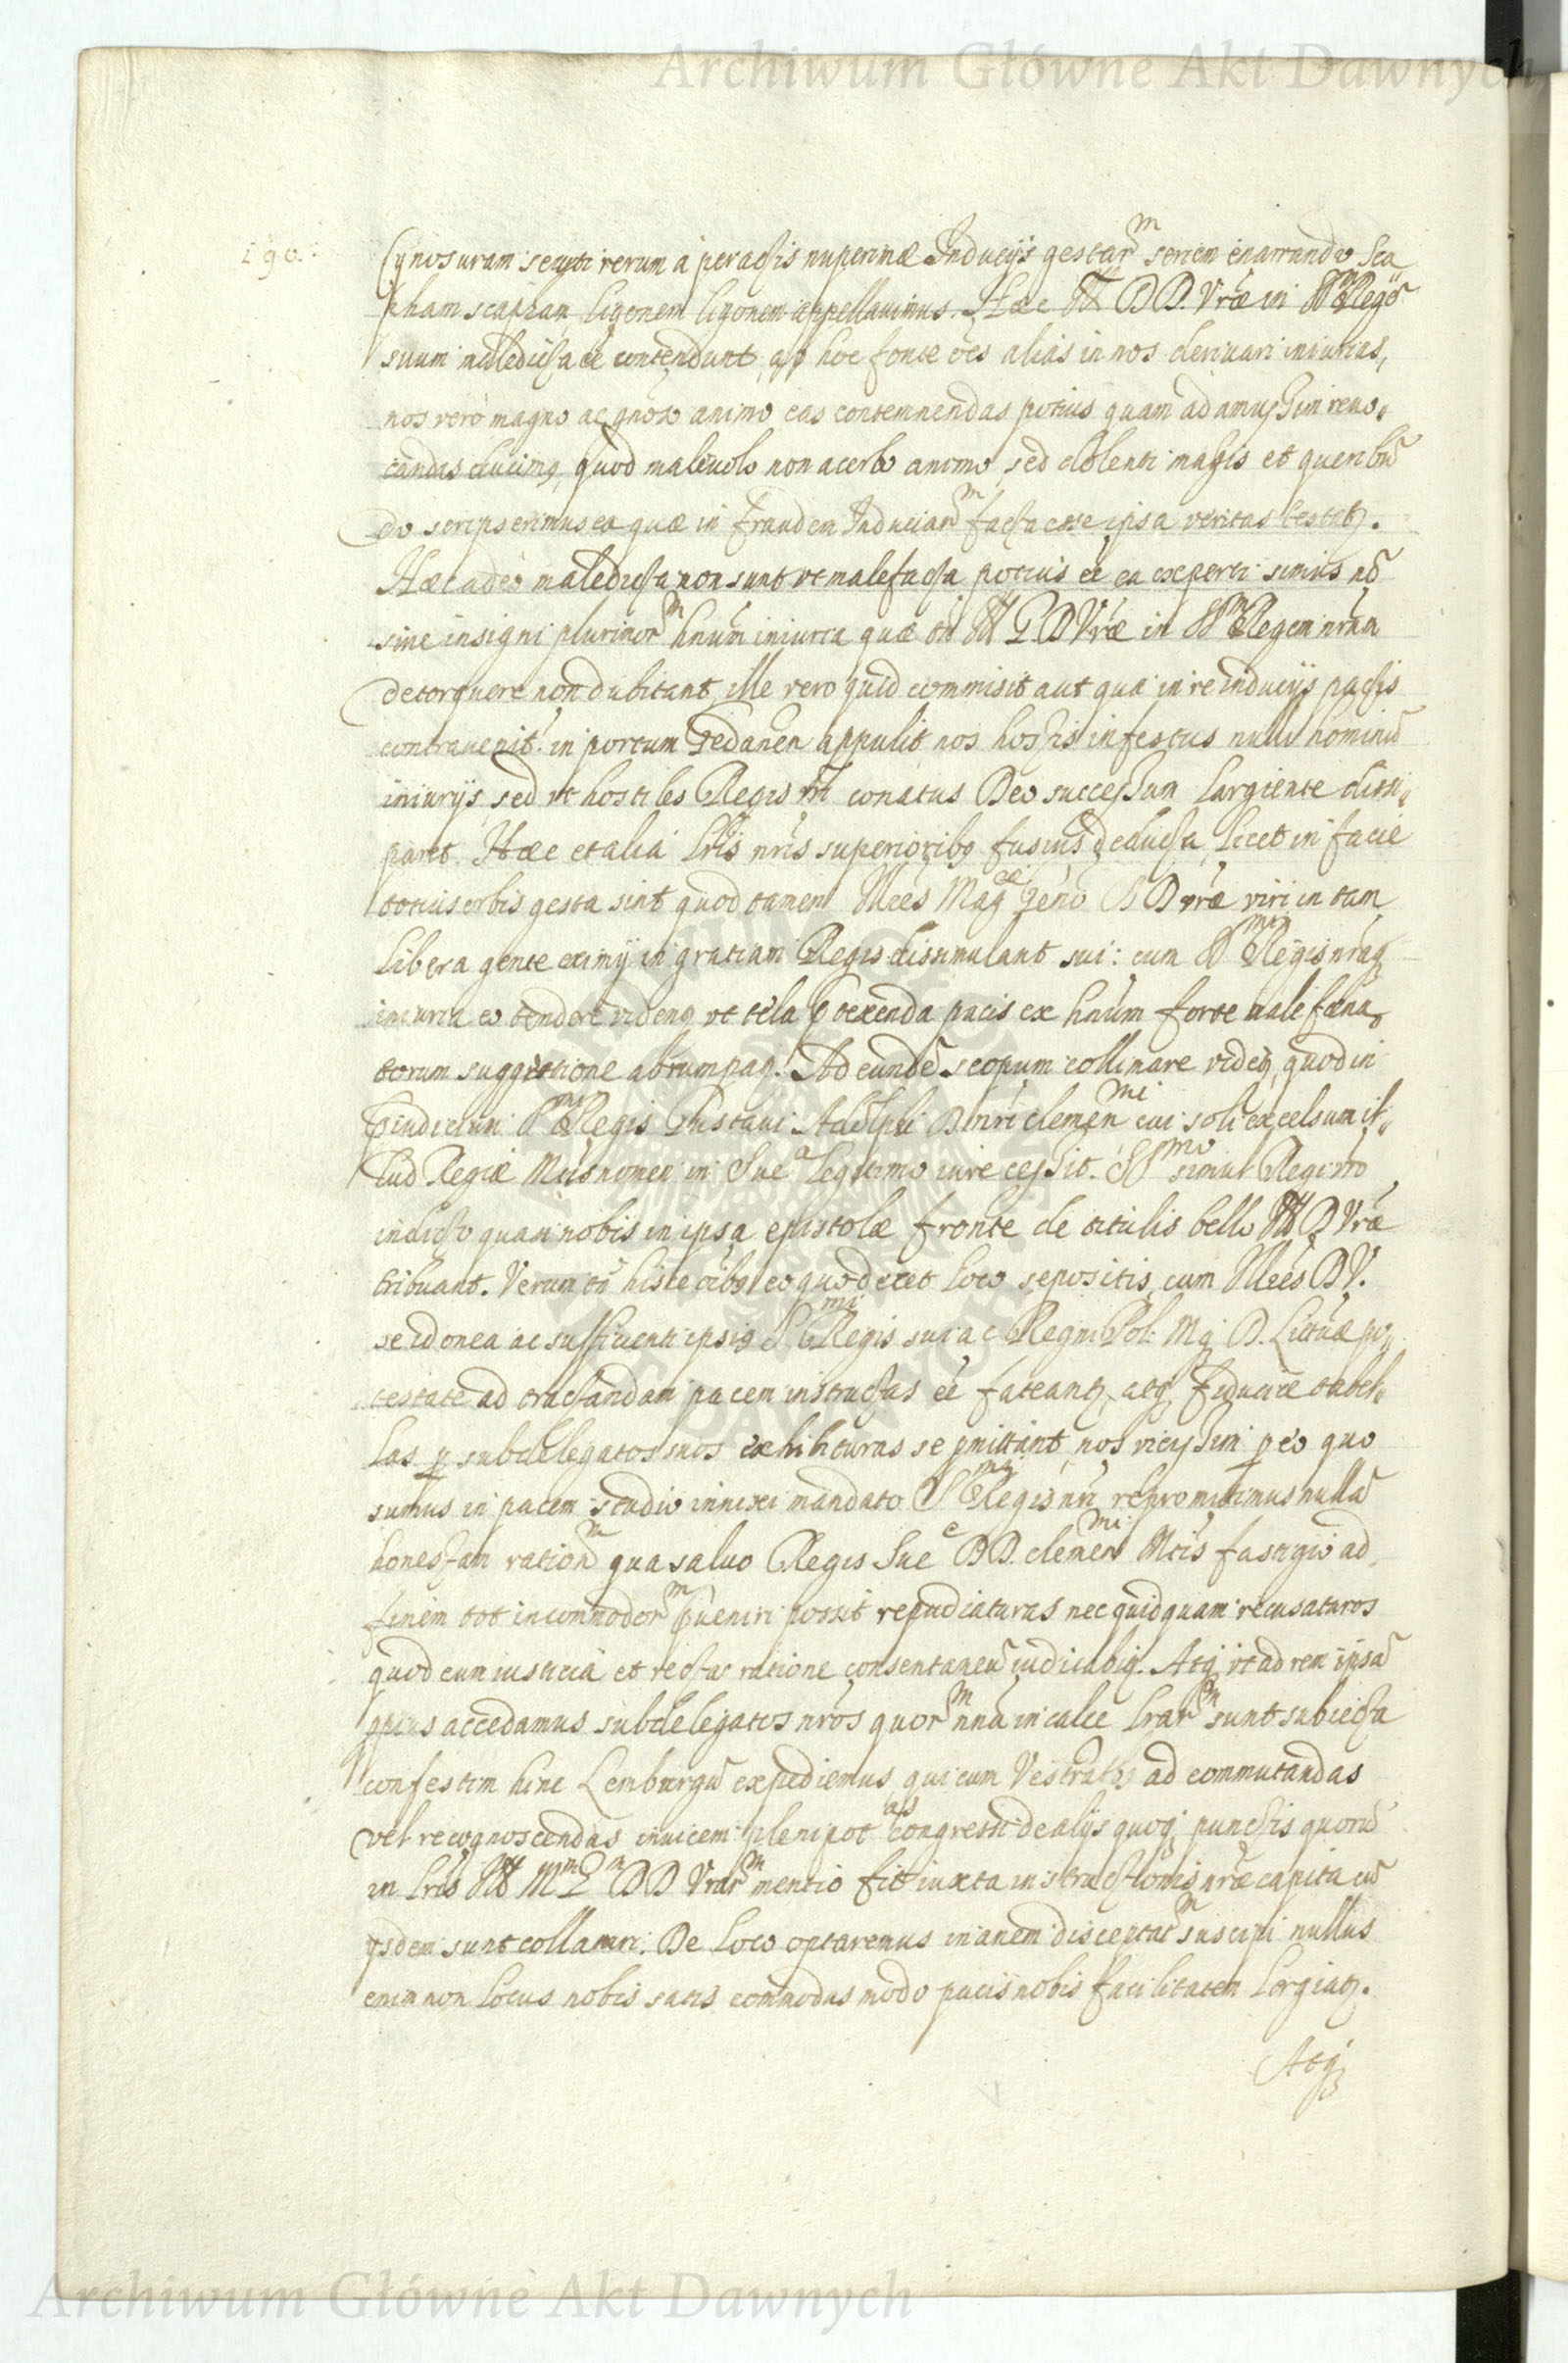 Archiwum Główne Akt Dawnych
190.
Cynosuram secuti rerum a peractis nuperinæ Induciis gestarm seriem enarrando Sca
pham scapham, ligonem ligonem appellavimus. Hæc DD. Vræ in Regē
suum maledicta ēē contendunt, hoc fonte oēs alias in nos derivari iniurias,
nos verò magno ac animo eas contemnendas potius quam ad amussim revo,
candas ducimq, quod malevolo non acerbo animo, sed dolenti magis et queribū
do scripserimus ea quæ in fraudem Induciarm facta esse ipsa veritas testatq.
Hæc adeò maledicta non sunt ut malefacta potius ēē ea experti simus nō
sine insigni plurimorm hnūm iniuria quæ tn̄ D Vræ in Regem nrūm
detorquere non dubitant, ille vero quid commisit aut qua in re induciis pactis
contravenit? in portum Gedanen appulit, nos hostis infestus nulli hominū
iniurijs, sed ut hostiles Regis vrī conatus Deo successum largiente dissi,
paret. Hæc et alia lrīs nrīs superioribq fusius deducta, licet in facie
totius orbis gesta sint quod tamen Illrēs Magcæ Genō DD vræ viri in tam
libera gente eximij in gratiam Regis dissimulant sui: cum Regis nrī
iniuria eo tendere videnq ut tela ptexenda pacis ex hnūm forte male
torum suggestione abrumpaq. Ad eundē scopum collimare videtq, quod in
pindicium Smi Regis Gustavi Adolphi D. nrī clemenmi cui soli excelsum il,
lud Regiæ Mtis nomen in Suea legitimo iure cessit. Smo simul Regi
indicto quasi nobis in ipsa epistolæ fronte de titulis bella D Vræ
tribuant. Verum tn̄ hisce oībq eo quo decet loco sepositis, cum Illrēs DV.
se idonea ac sufficienti ipsiq Smi Regis sui ac Regni Pol: Mq D. Lituæ po,
testate ad tractandam pacem instructas ēē fateantq, atq fiduciæ tabel,
las p subdelegatos suos exhibituras se pmittant, nos vicissim p eo quo
sumus in pacem studio innixi mandato Smi Regis nrī repromittimus nullā
honestam rationm qua salvo Regis Suee DD. clemenmi Mtis fastigio ad
finem tot incommodorm pveniri possit repudiaturas nec quidquam recusaturos
quod cum iusticia et recta ratione consentaneū iudicabiq. Atq ut ad rem ipsā
ppius accedamus subdelegatos nrōs quorm nna in calce lrarm sunt subiecta
confestim hinc Lemburgū expediemus, qui cum Vestratibq ad commutandas
vel recognoscendas invicem plenipotas congressi de alijs quoq punctis quorū
in lrīs DD Vrarm mentio fit iuxta instructionis nræ capita cū
ijsdem sunt collaturi. De loco optaremus inanem disceptatm suscipi nullus
enim non locus nobis satis commodus modo pacis nobis facilitatem largiatq.
Atq
Archiwum Główne Akt Dawnych